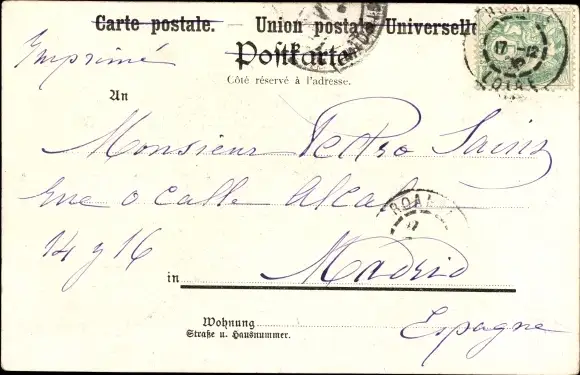 Carte postale. — Union postale Universelle
Imprimé
Postkarte
Côté réservé à l'adresse.
An
Monsieur Pedro Sainz
Rue o Calle Alcala
14 y 16
ROAN
17
in Madrid
Wohnung
Straße u. Hausnummer.
Espagne
17 -12
LOIRE